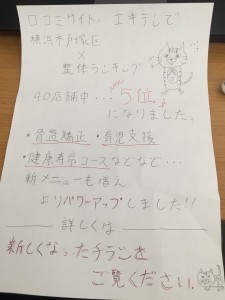 口コミサイト、エキテンで
横浜市戸塚区
×
整体ランキング
40店舗中・・・5位
になりました。
・骨盤矯正・育児支援
・健康寿命コースなどなど・・・
新メニューも増え
よりパワーアップしました!!
詳しくは
新しくなったチラシを
ご覧ください。